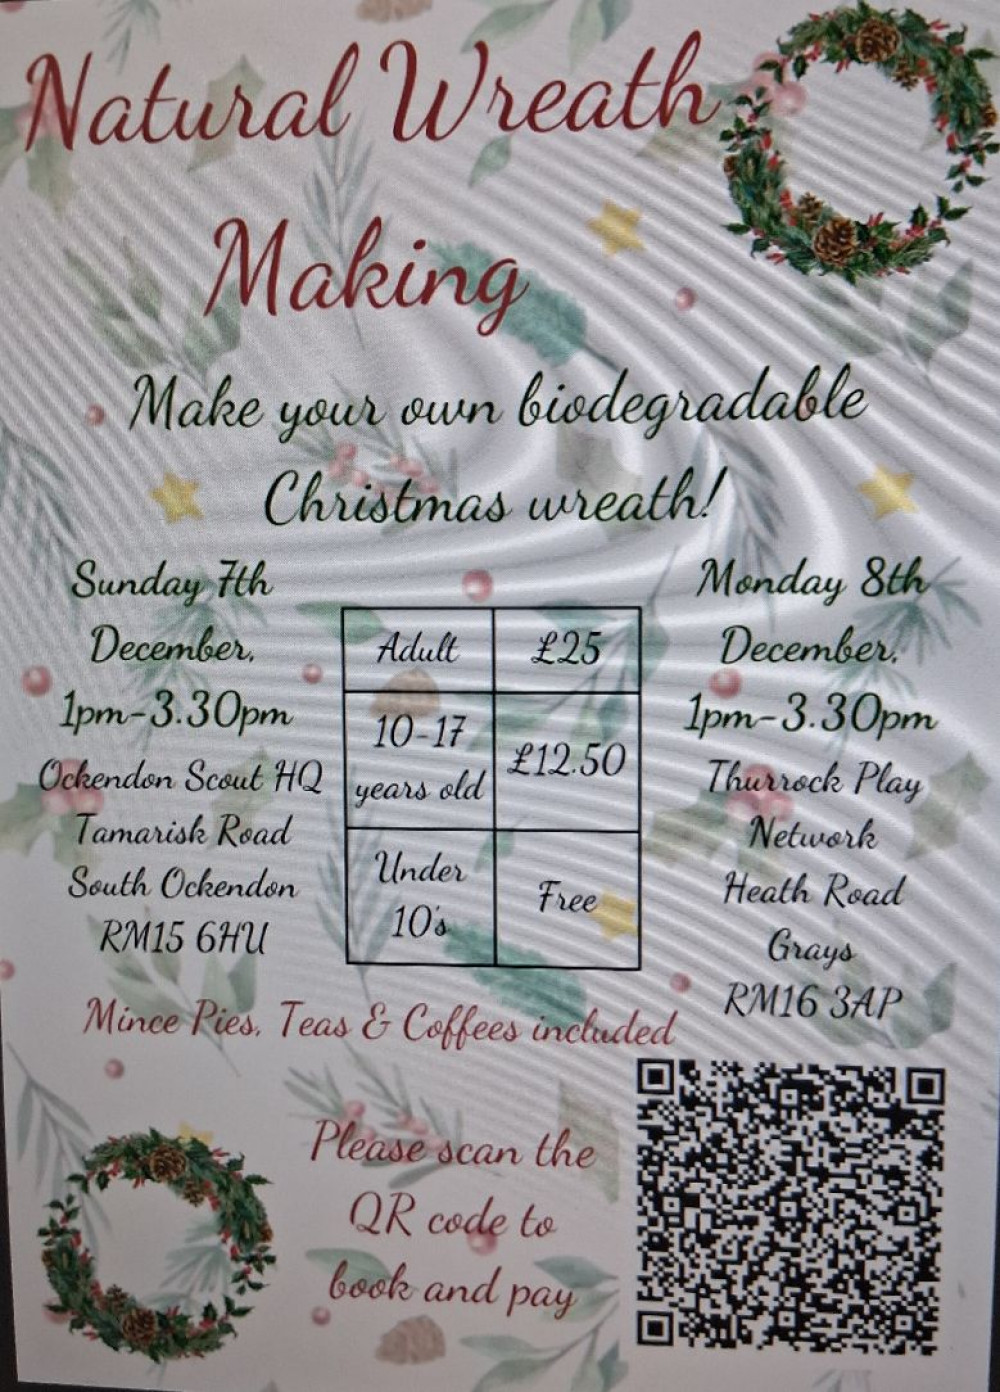 Natural Wreath
Making
Make your own biodegradable
Christmas wreath!
Sunday 7th
December,
1pm-3.30pm
Ockendon Scout HQ
Tamarisk Road
South Ockendon
RM15 6HU
Adult £25
10-17
years old
£12.50
Under
10's
Free
Monday 8th
December,
1pm-3.30pm
Thurrock Play
Network
Heath Road
Grays
RM16 3AP
Mince Pies, Teas & Coffees included
Please scan the
QR code to
book and pay